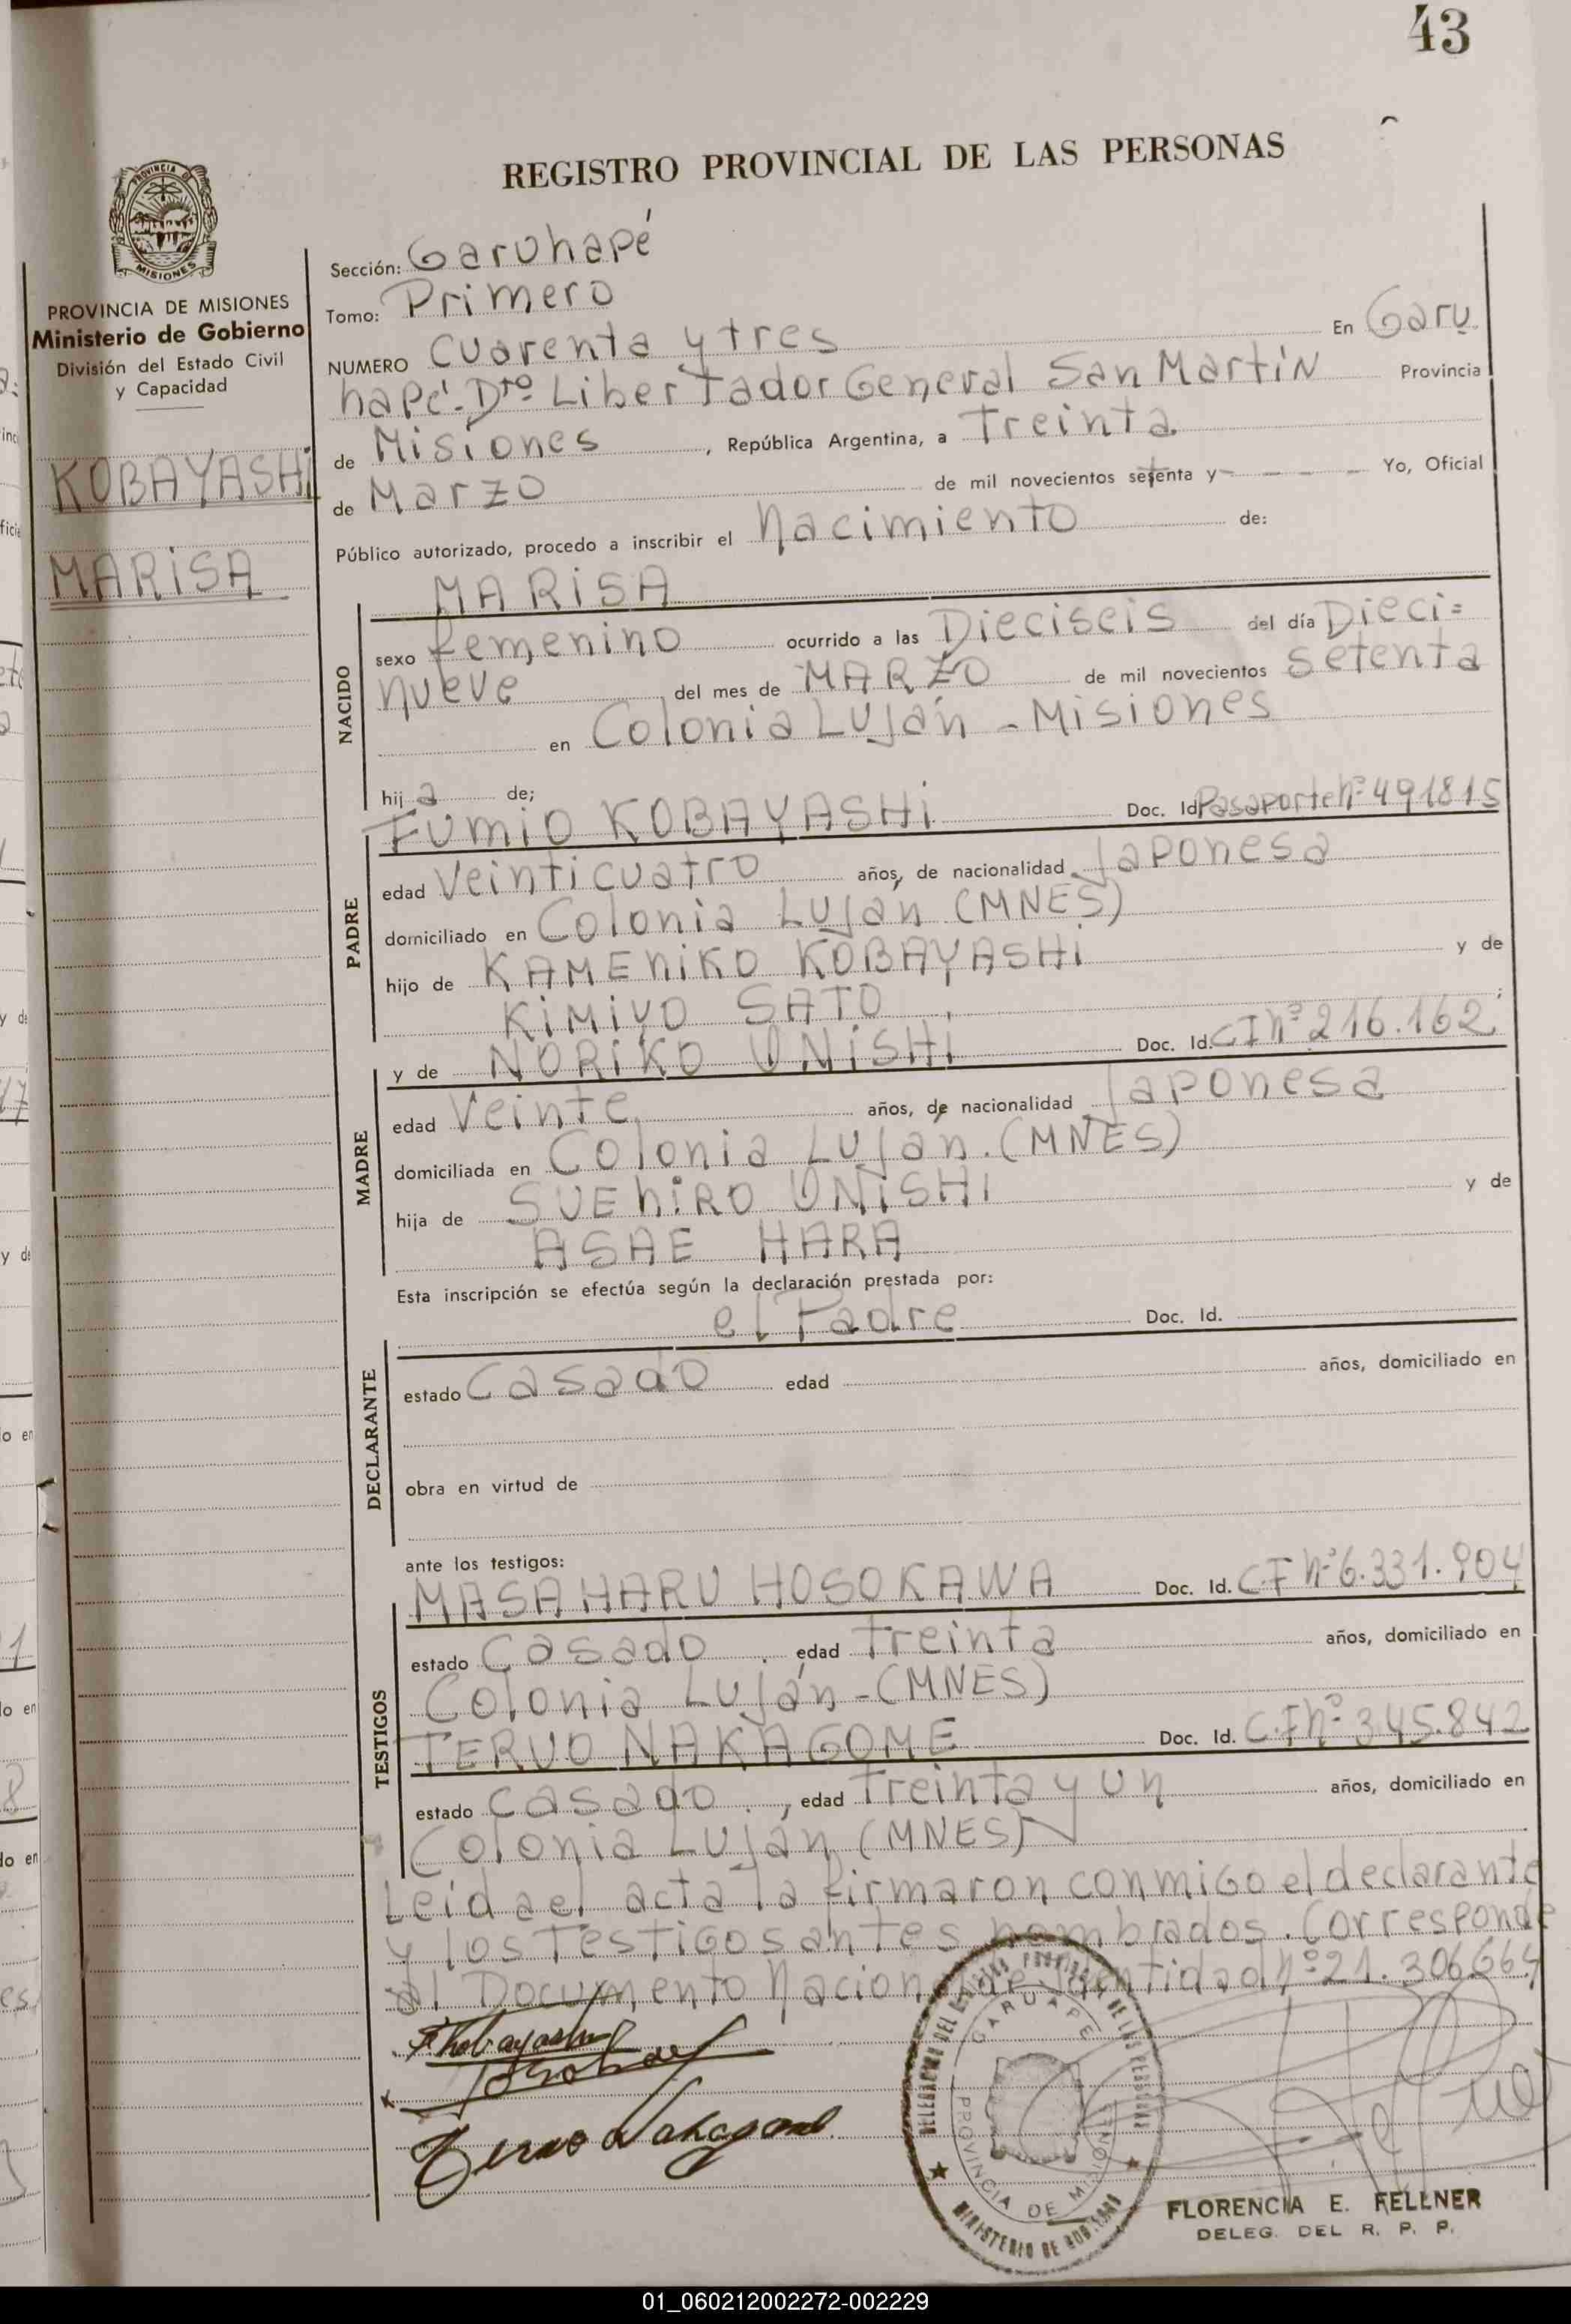 43
REGISTRO PROVINCIAL DE LAS PERSONAS
PROVINCIA DE MISIONES
PROVINCIA DE MISIONES
Ministerio de Gobierno
División del Estado Civil
y Capacidad
KOBAYASHI
MARISA
Sección: Garuhapé
Tomo: Primero
NUMERO Cuarenta y tres En Garu
hapé - Dto Libertador General San Martín Provincia
de Misiones, República Argentina, a Treinta
de Marzo de mil novecientos setenta y - - - - Yo, Oficial
Público autorizado, procedo a inscribir el nacimiento de:
MARISA
NACIDO
sexo femenino ocurrido a las Dieciseis del día Dieci=
nueve del mes de MARZO de mil novecientos setenta
en Colonia Luján - Misiones
hij a de;
FUMIO KOBAYASHI Doc. Id. Pasaporte nº 491815
PADRE
edad Veinticuatro años, de nacionalidad Japonesa
domiciliado en Colonia Luján (MNES)
hijo de KAMENIKO KOBAYASHI y de
KIMIYO SATO ;
y de NORIKO UNISHI Doc. Id. CI nº 216.162
MADRE
edad Veinte años, de nacionalidad Japonesa
domiciliada en Colonia Luján. (MNES)
hija de SUEHIRO UNISHI y de
ASAE HARA
Esta inscripción se efectúa según la declaración prestada por:
el Padre Doc. Id.
DECLARANTE
estado Casado edad años, domiciliado en
obra en virtud de
ante los testigos:
MASAHARU HOSOKAWA Doc. Id. C.I nº 6.331.904
TESTIGOS
estado Casado, edad treinta años, domiciliado en
Colonia Luján - (MNES)
TERUO NAKAGOME Doc. Id. C.I nº 345.842
estado casado, edad treinta y un años, domiciliado en
Colonia Luján (MNES)
Leida el acta la firmaron conmigo el declarante
y los testigos antes nombrados. Corresponde
al Documento Nacional de Identidad nº 21.306.664
F. Kobayashi
Teruo Nakagome
DELEGACION DEL REGISTRO PROVINCIAL DE LAS PERSONAS
GARUAPE
PROVINCIA DE MISIONES
MINISTERIO DE GOBIERNO
FLORENCIA E. FELLNER
DELEG. DEL R. P. P.
01_060212002272-002229